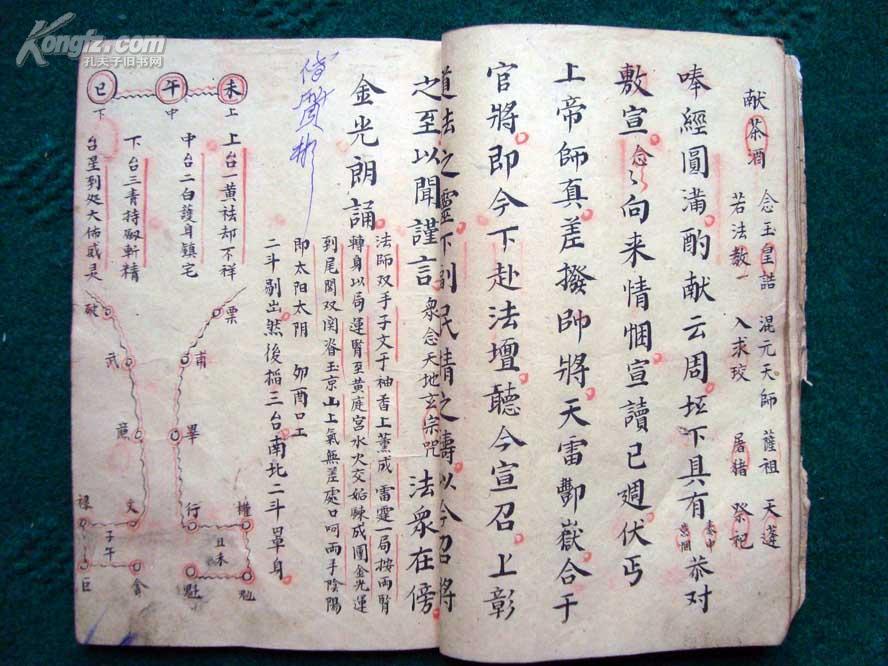 献茶酒
念玉皇誥 混元天師 薩祖 天蓬
若法教一 入求珓 屠猪 祭祀
唪經圓滿酌献云周坛下具有 恭对
敷宣念々向来情悃宣讀已週伏丐
上帝師真差撥帥將天雷酆嶽合于
官將即今下赴法壇聽今宣召上彰
道法之靈下副民情之禱以今召將
之至以聞謹言 衆念天地玄宗咒 法衆在傍
金光朗誦
法師双手子文于袖香上薰成 雷霆一局按兩腎
轉身以局運腎至黄庭宮水火交姤煉成團金光運
到尾閭双関脊玉京山上氣無差處口呵兩手陰陽
即太阳太阴 卯酉口工
二斗剔出然後稻三台南北二斗罩身
未 午 巳
上 中 下
上台一黄祛却不祥
中台二白護身鎮宅
下台三青持劔斬精
台星到処大佑威灵
票
甫
畢
行
權
丑未
魁
魀
破
武
廉
文
禄
子午
巨
貪
Kongfz.com
孔夫子旧书网